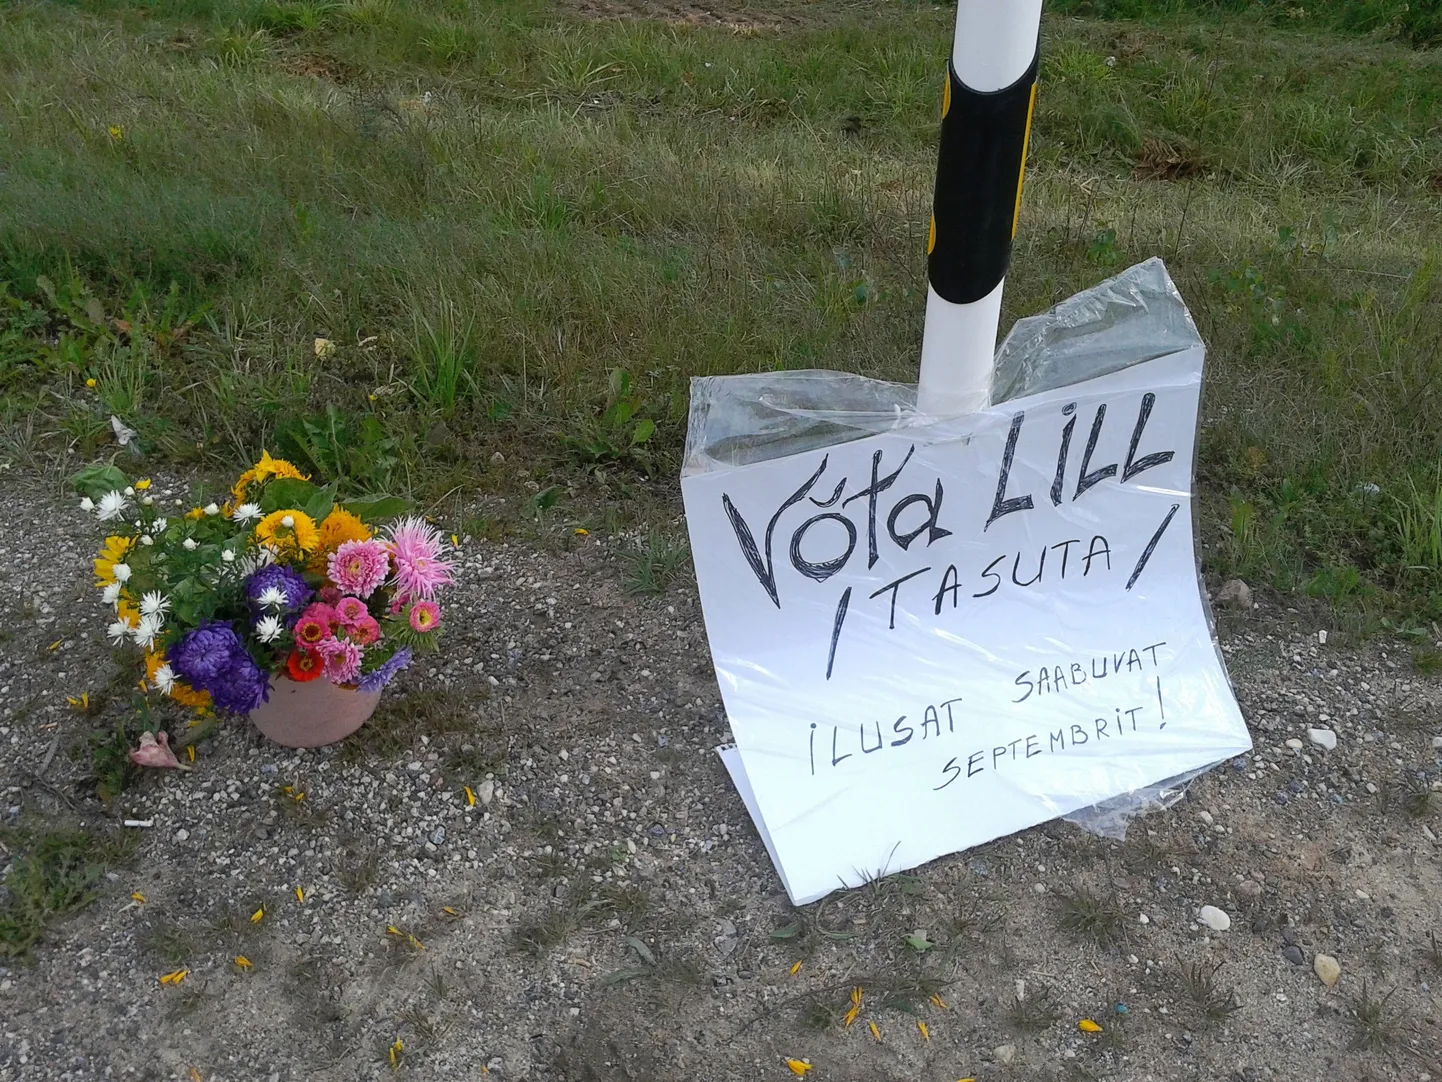 Võta LiLL
/TASUTA/
iLUSAT SAABUVAT
SEPTEMBRiT!